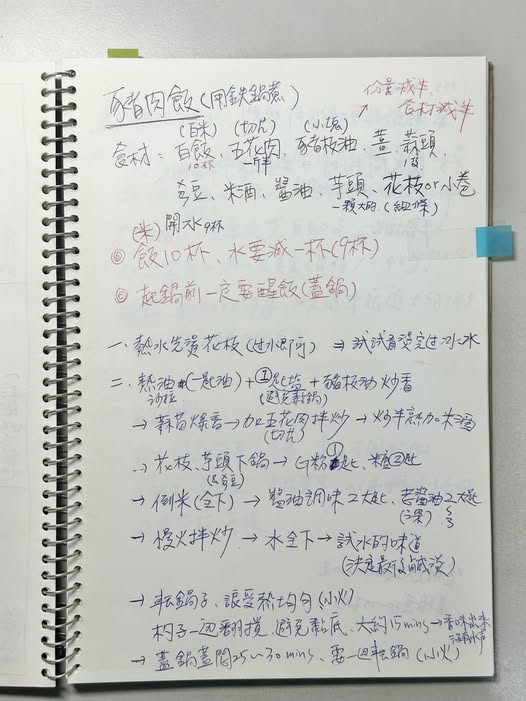 豬肉飯(用鉄鍋煮)
份量減半
食材減半
(白米) (切片) (小塊)
食材：白飯、五花肉、豬板油、薑、蒜頭、
10杯 一斤半
豆、米酒、醬油、芋頭、花枝or小卷
一顆大的 (細條)
(米) 開水9杯
◎ 飯10杯、水要減一杯(9杯)
◎ 起鍋前一定要醒飯(蓋鍋)
一、熱水先燙花枝(过水即可) ⇒ 試試看沒完过冰水
二、熱油(一匙油)+①匙塩+豬板油炒香
沙拉 (避免黏鍋)
→ 蒜苗爆香→加五花肉拌炒→炒半熟加米酒
(切片)
∴ 花枝、芋頭下鍋→G粉①匙、糖②匙
→ 倒米(全下)→醬油調味2大匙、老醬油2大匙
→ 慢火拌炒→水全下→試水的味道
(決定最後鹹淡)
→ 轉鍋子、讓受熱均勻(小火)
杓子一边翻攪、避免黏底、大約15mins→香味出來
沒有水声
→ 蓋鍋蓋悶25~30mins、要一边轉鍋(小火)